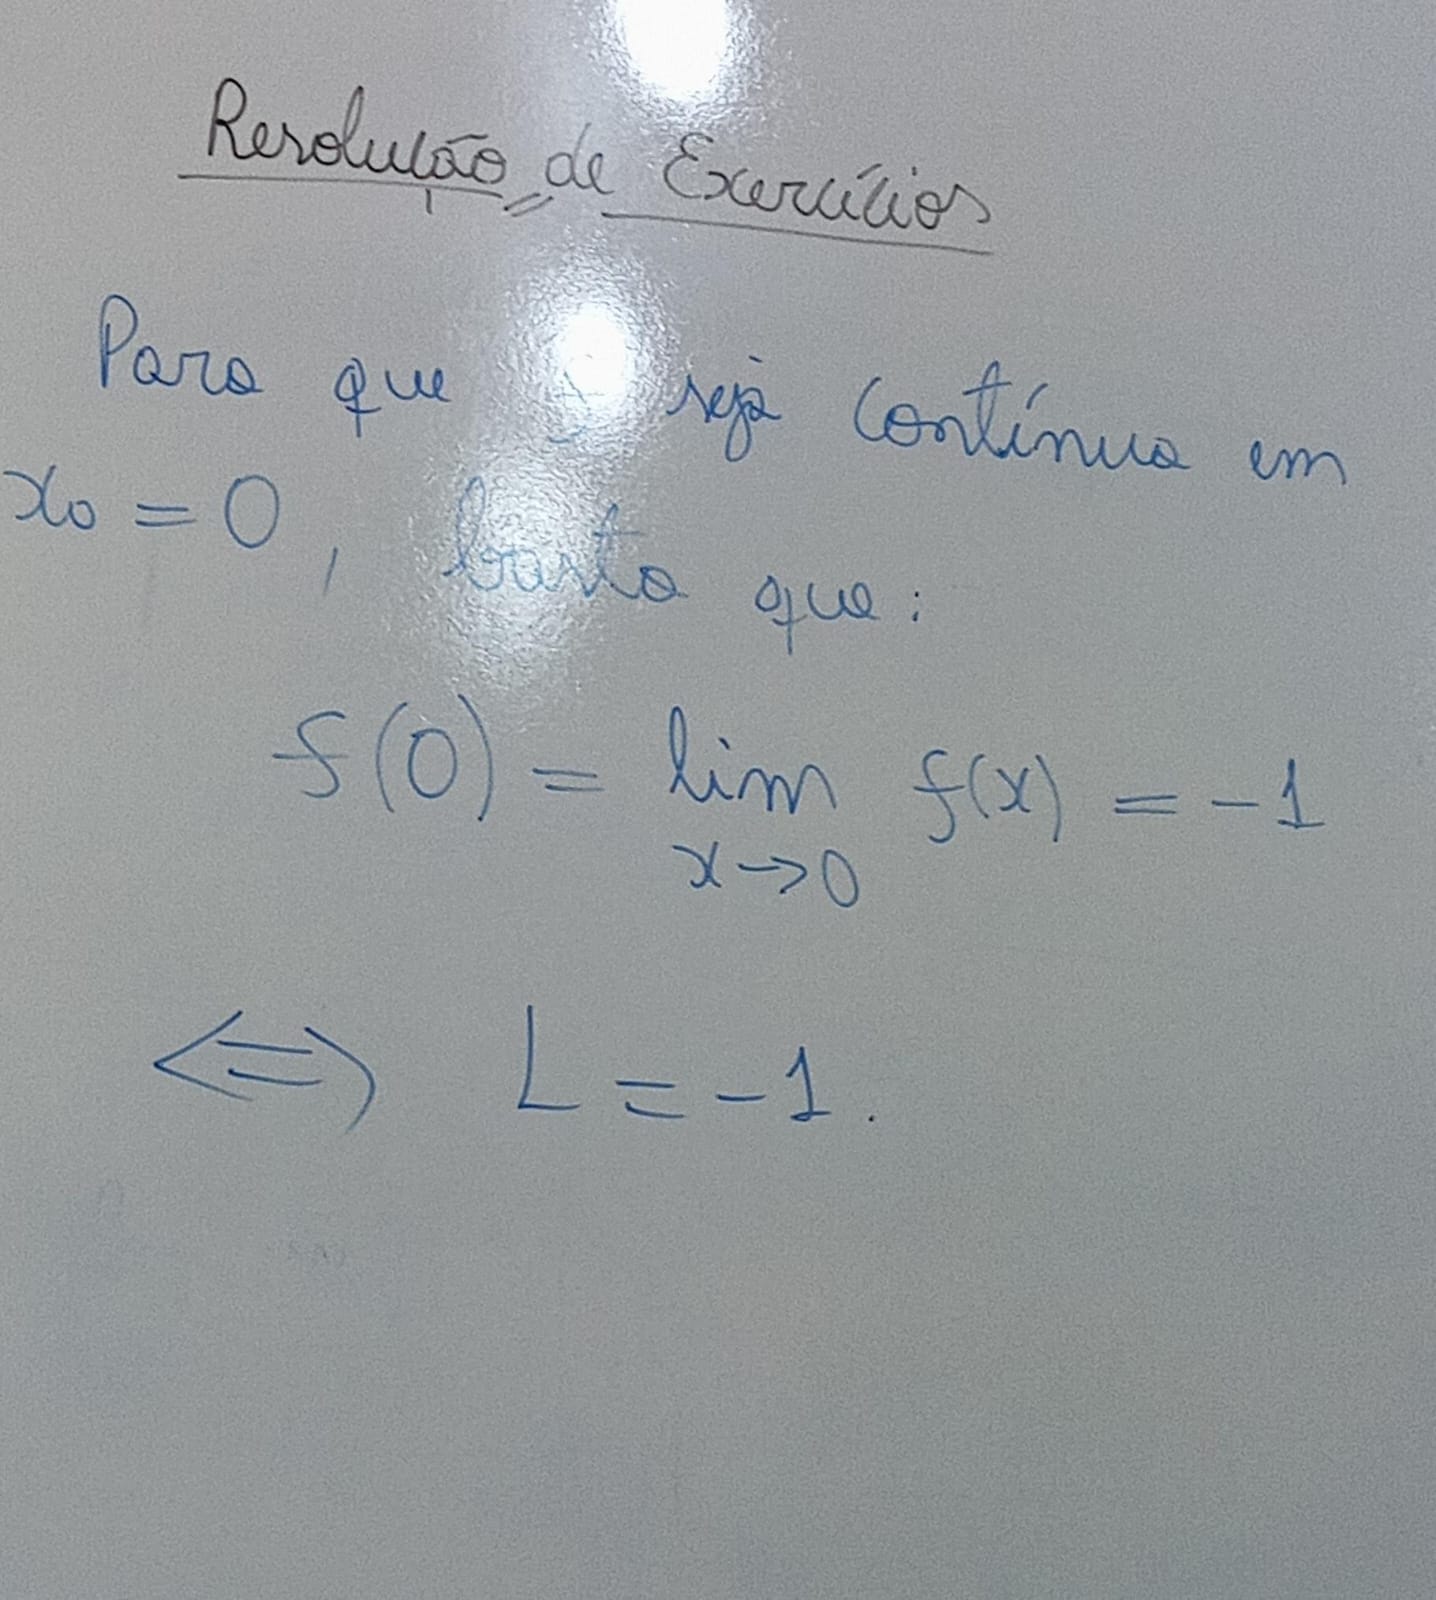 Resolução de Exercícios
Para que f seja contínua em
x₀ = 0, basta que:
f(0) = lim f(x) = -1
x→0
⇔ L = -1.